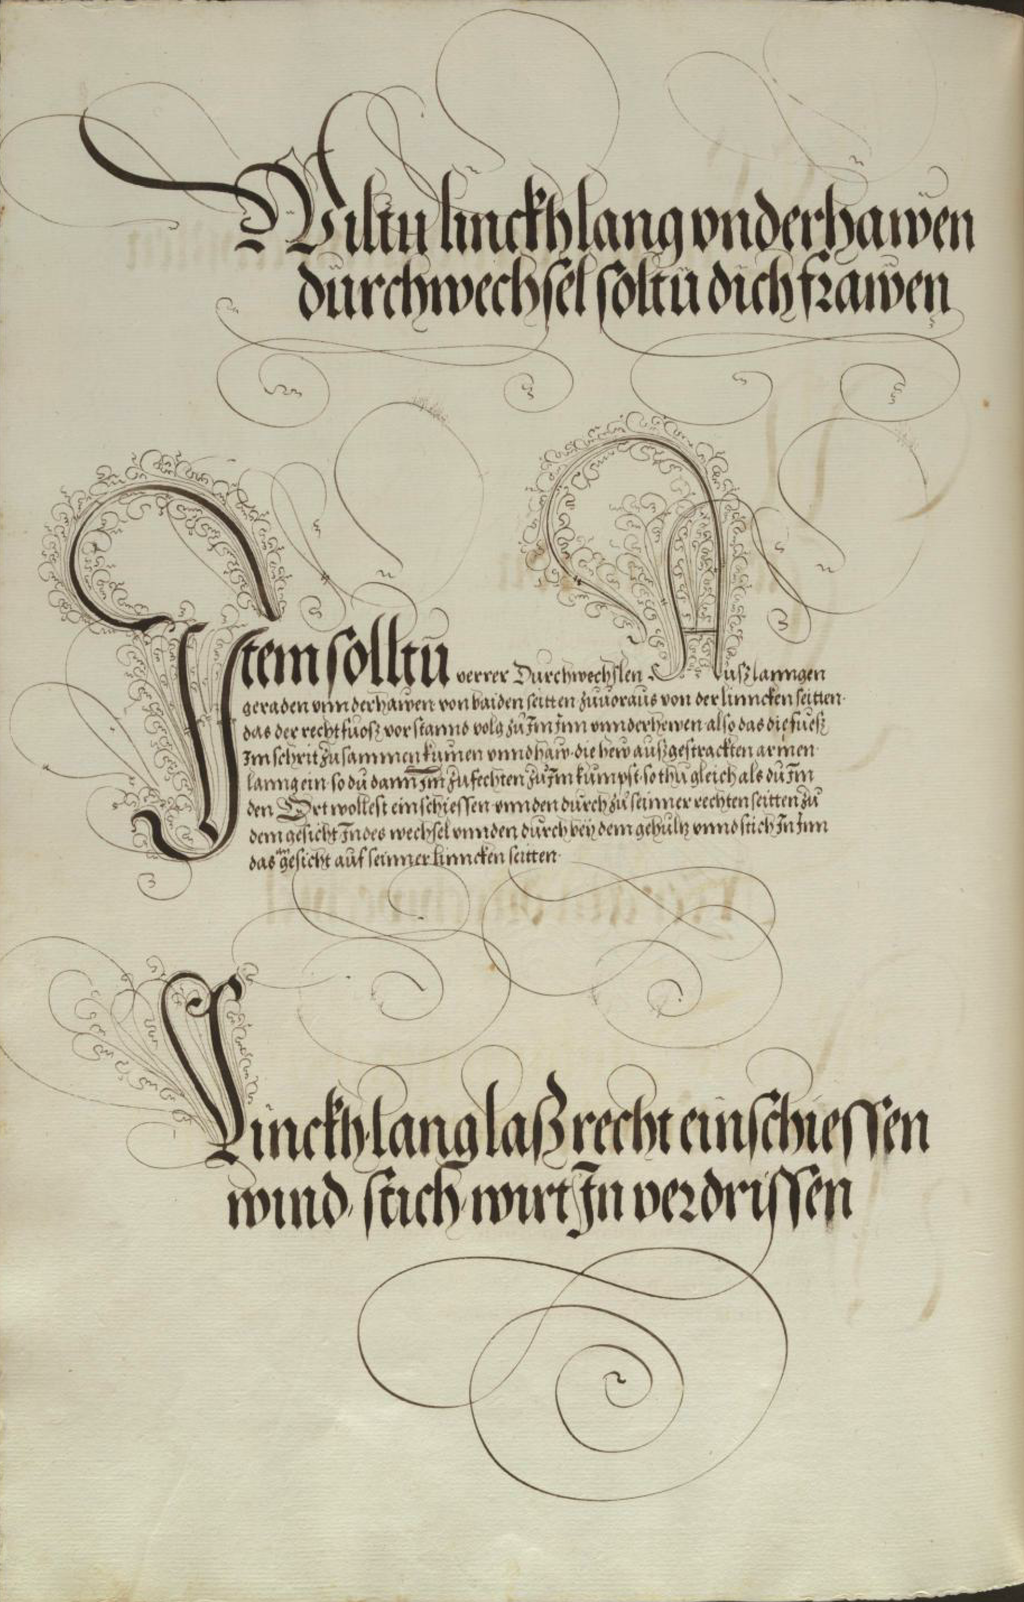 Wiltu linckh lang vnderhawen
durchwechsel soltu dich frawen
Item solltu verrer Durchwechslen Auß lanngen
geraden vnnderhawen von baiden seitten zuuoraus von der linncken seitten
das der recht fuosz vorstannd volg zu Im Inn vnnderhewen also das die fuesz
Im schrit zusammen kumen vnnd haw die hew außgestrackten armen
lanng ein so du dann Im zufechten zu Im kumpst so thu gleich als du Im
den Ort wollest einschiessen vnnden durch zu seinner rechten seitten zu
dem gesicht Indes wechsel vnnden durch bey dem gehultz vnnd stich In Inn
das gesicht auf seinner linncken seitten
Linckh lang laß recht einschiessen
wind stich wirt In verdrissen